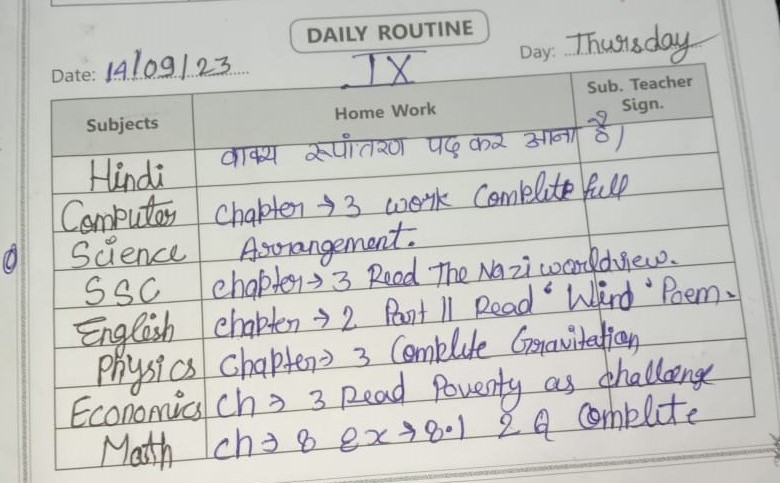 DAILY ROUTINE
Date: 14/09/23 Day: Thursday
IX
Subjects Home Work Sub. Teacher Sign.
Hindi वाक्य रूपांतरण पढ़ कर आना है।
Computer Chapter → 3 work Complite full
Science Arrangement.
SSC Chapter → 3 Read The Nazi worldview.
English Chapter → 2 Part II Read ' Wind ' Poem.
Physics Chapter → 3 Complite Gravitation
Economics Ch → 3 Read Poverty as challenge
Math Ch → 8 ex → 8.1 2 Q Complite